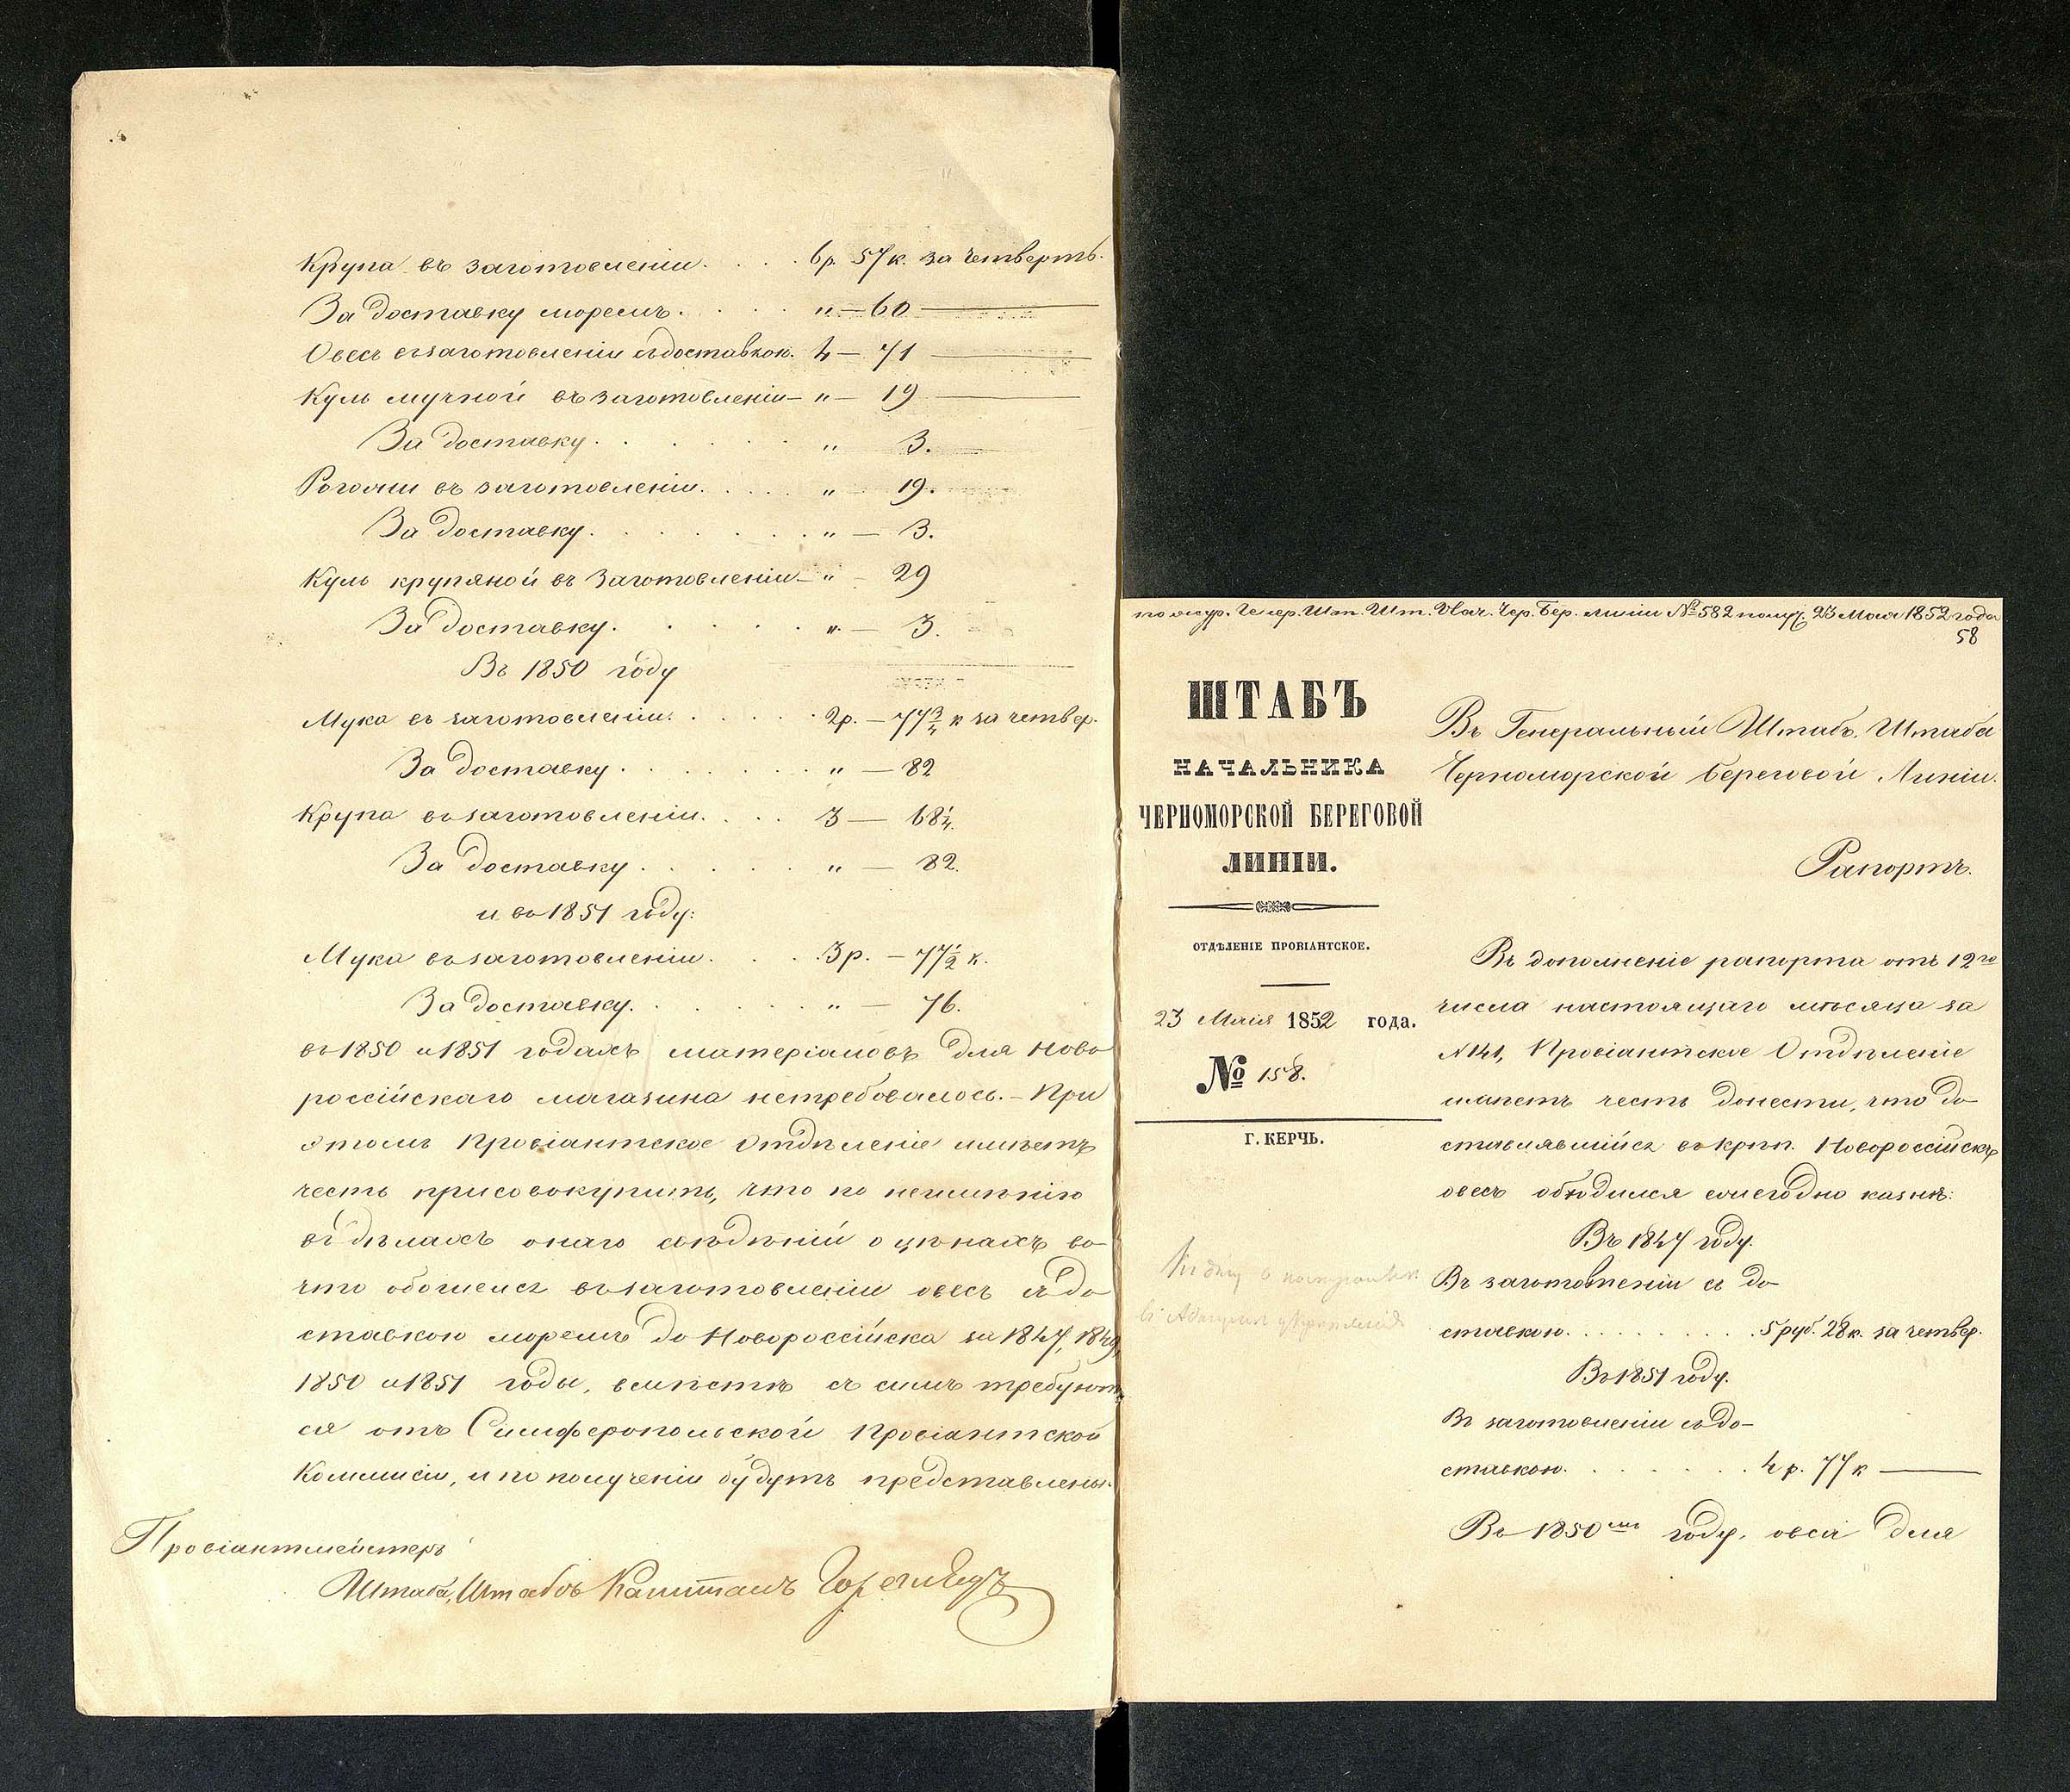 Крупа въ заготовленіи. . . . 6р. 57к. за четверть.
За доставку моремъ. . . . „ — 60 ———
Овесъ въ заготовленіи съ доставкою. 4 — 71 ———
Куль мучной въ заготовленіи — „ — 19 ———
За доставку. . . . „ 3.
Рогожи въ заготовленіи. . . . „ 19.
За доставку. . . . „ — 3.
Куль крупяной въ заготовленіи — „ — 29
За доставку. . . . „ — 3.
Въ 1850 году
Мука въ заготовленіи. . . . 2р. — 77¾ к за четвер.
За доставку. . . . „ — 82
Крупа въ заготовленіи. . . . 3 — 68¼.
За доставку. . . . „ — 82.
и въ 1851 году:
Мука въ заготовленіи. . . . 3р. — 77½ к.
За доставку. . . . „ — 76.
въ 1850 и 1851 годахъ матеріаловъ для Ново
россійскаго магазина нетребовалось. — При
этомъ Провіантское Отдѣленіе имѣетъ
честь присовокупить, что по неимѣнію
въ дѣлахъ онаго свѣдѣній о цѣнахъ во
что обошелся въ заготовленіи овесъ съ до
ставкою моремъ до Новороссійска за 1847, 1849,
1850 и 1851 годы, вмѣстѣ съ симъ требуют
ся отъ Симферопольской Провіантской
Коммисіи, и по полученіи будутъ представлены.
Провіантмейстеръ
Штаба, Штабсъ Капитанъ
по журн. Генер. Шт. Шт. Нач. Чер. Бер. линіи № 582 получ. 23 Мая 1852 года
58
ШТАБЪ
НАЧАЛЬНИКА
ЧЕРНОМОРСКОЙ БЕРЕГОВОЙ
ЛИНІИ.
ОТДѢЛЕНІЕ ПРОВІАНТСКОЕ.
23 Мая 1852 года.
№ 158.
Г. КЕРЧЬ.
Въ Генеральный Штабъ, Штаба
Черноморской береговой Линіи.
Рапортъ.
Въ дополненіе рапорта отъ 12го
числа настоящаго мѣсяца за
№141, Провіантское Отдѣленіе
имѣетъ честь донести, что до
ставлявшійся въ крѣп. Новороссійскъ
овесъ обходился ежегодно казнѣ:
Въ 1847 году.
Въ заготовленіи съ до
ставкою. . . . 5 руб. 28 к. за четвер.
Въ 1851 году.
Въ заготовленіи съ до–
ставкою. . . . 4 р. 77 к ———
Въ 1850мъ году, овса для